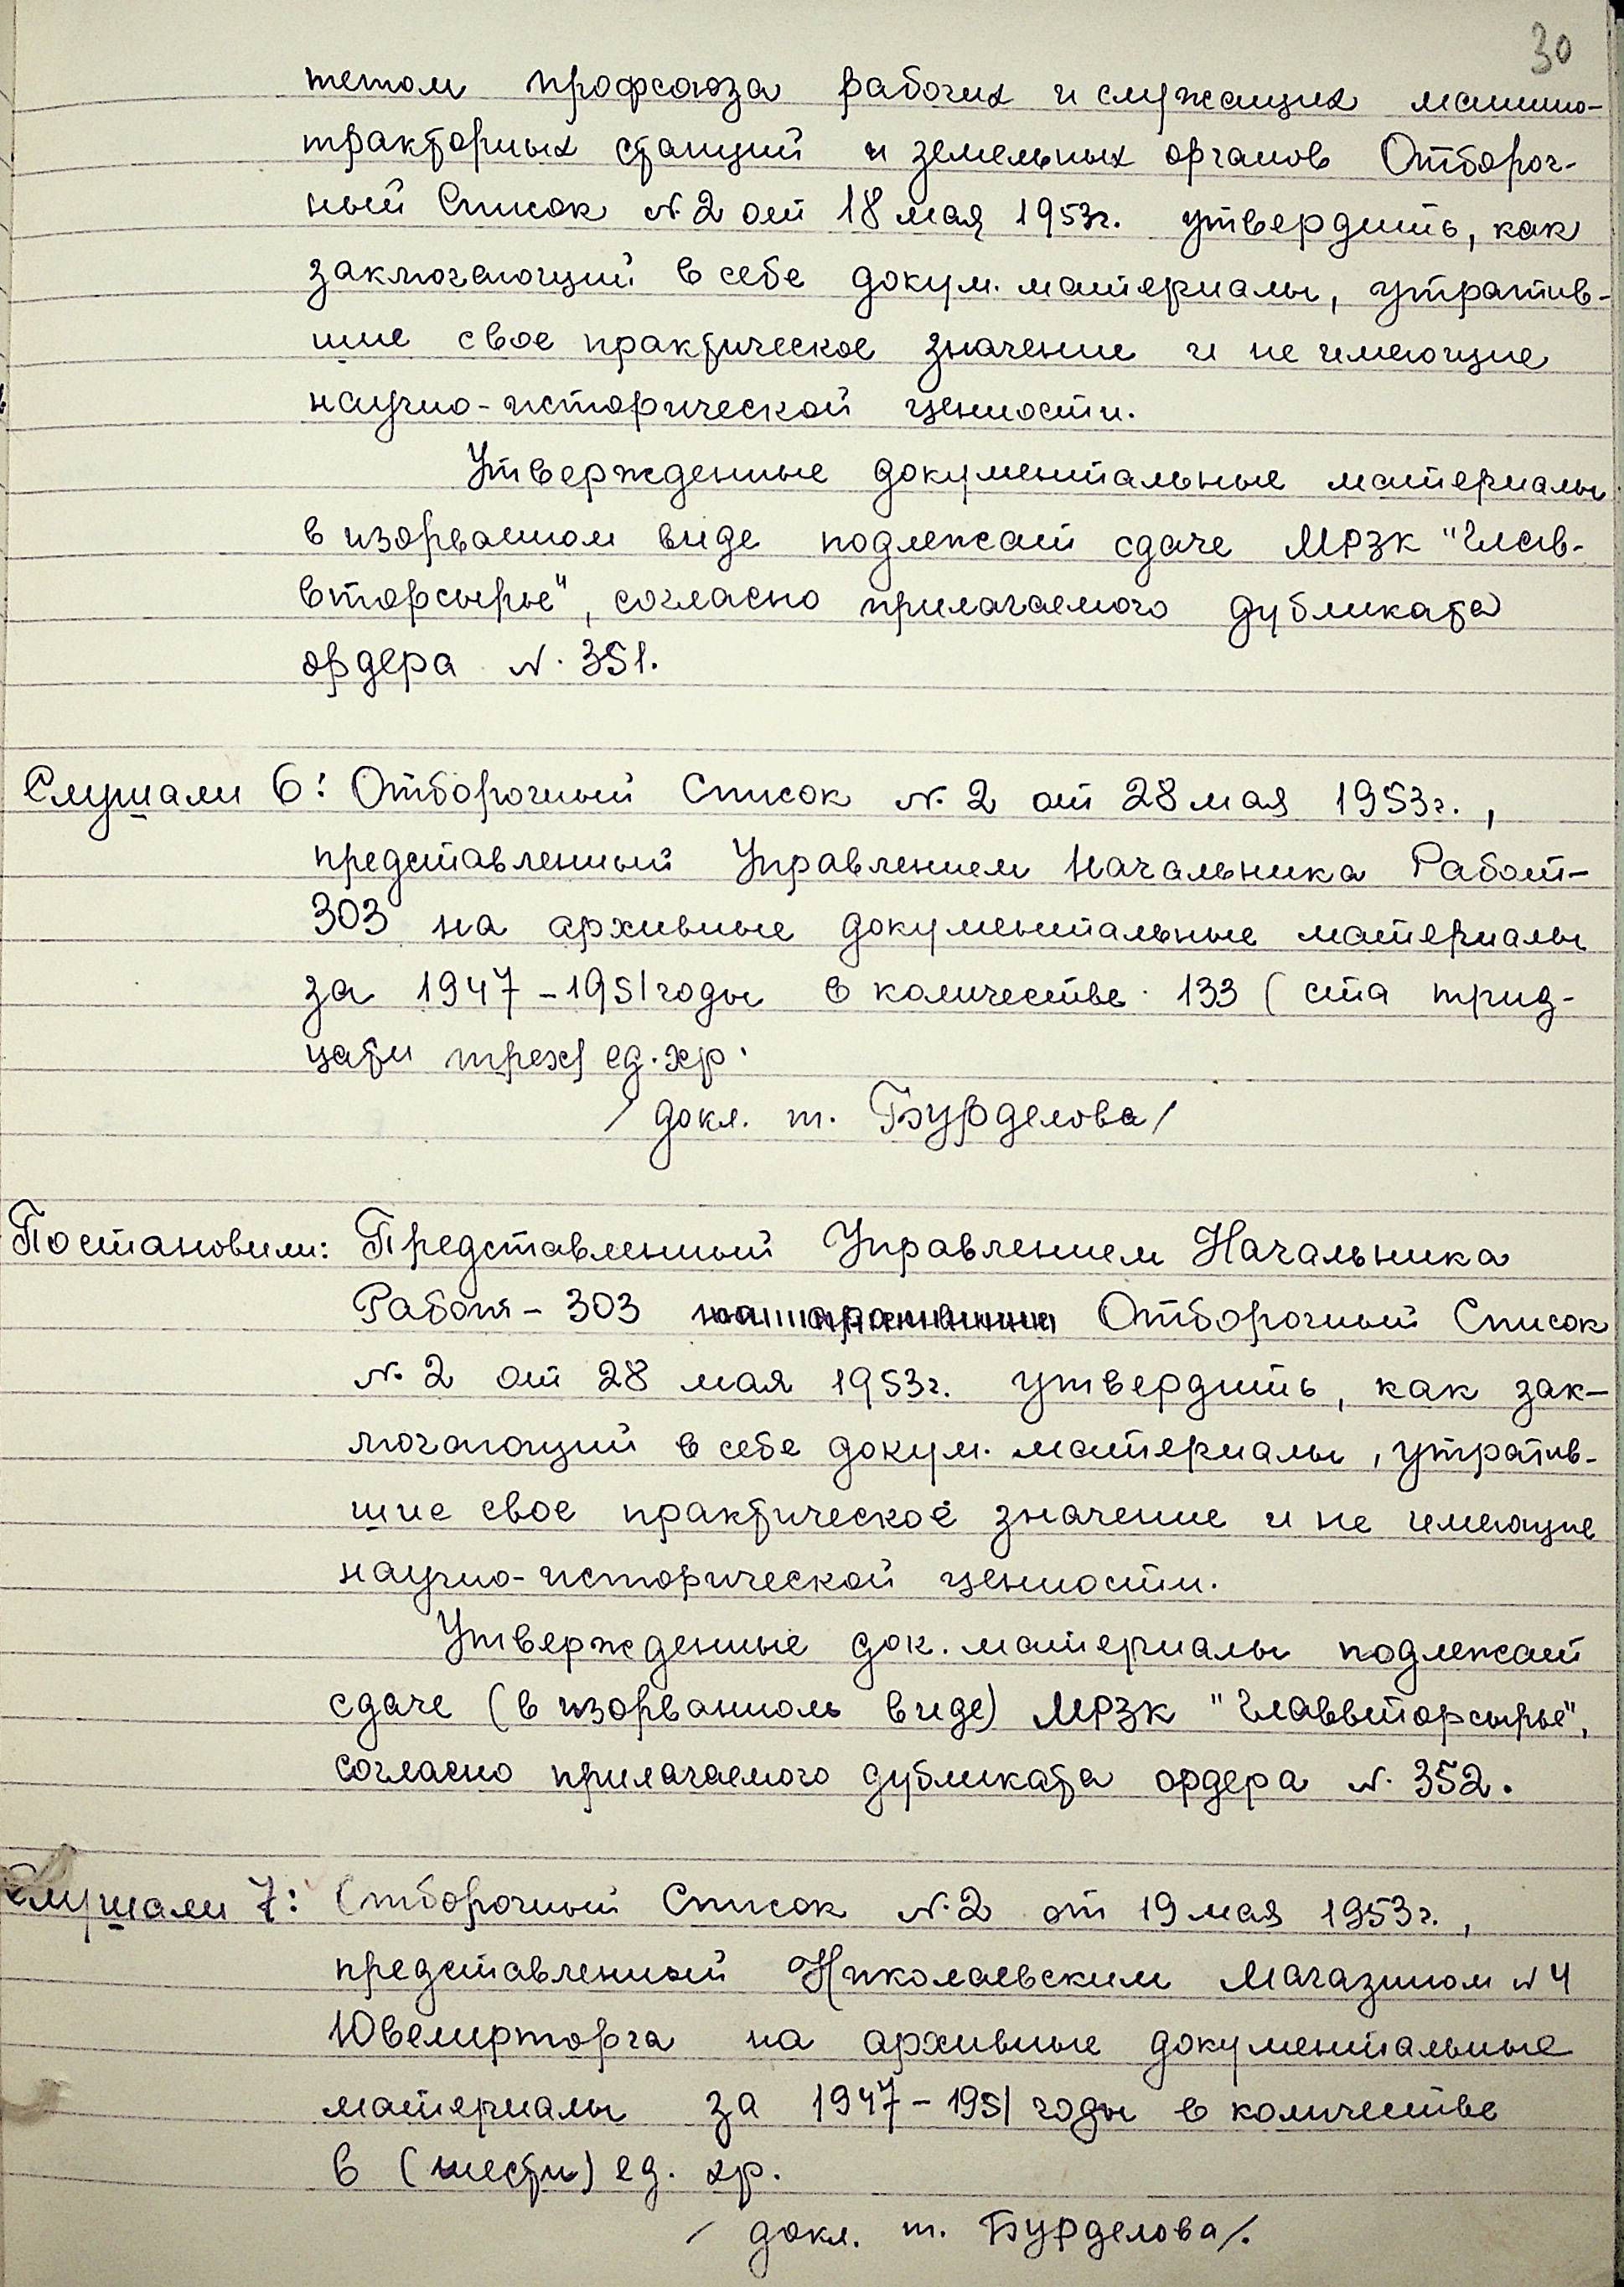 30
тетом профсоюза рабочих и служащих машино-
тракторных станций и земельных органов Отбороч-
ный Список №2 от 18 мая 1953г. утвердить, как
заключающий в себе докум. материалы, утратив-
шие свое практическое значение и не имеющие
научно-исторической ценности.
Утвержденные документальные материалы
в изорванном виде подлежат сдаче МРЗК "Глав-
вторсырье", согласно прилагаемого дубликата
ордера №. 351.
Слушали 6: Отборочный Список №. 2 от 28 мая 1953г.,
представленный Управлением Начальника Работ-
303 на архивные документальные материалы
за 1947-1951 годы в количестве 133 (ста трид-
цати трех) ед. хр.
/докл. т. Бурделова/
Постановили: Представленный Управлением Начальника
Работ-303 Отборочный Список
№. 2 от 28 мая 1953г. утвердить, как зак-
лючающий в себе докум. материалы, утратив-
шие свое практическое значение и не имеющие
научно-исторической ценности.
Утвержденные док. материалы подлежат
сдаче (в изорванном виде) МРЗК "Главвторсырье",
согласно прилагаемого дубликата ордера №. 352.
Слушали 7: Отборочный Список №.2 от 19 мая 1953г.,
представленный Николаевским Магазином №4
Ювелирторга на архивные документальные
материалы за 1947-1951 годы в количестве
6 (шести) ед. хр.
/докл. т. Бурделова/.